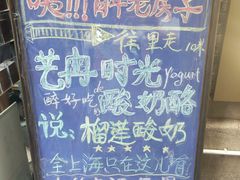 咦!!!醉老房子
往里走10米
芒冉时光 Yogurt
醉好吃de酸奶酪
说:榴莲酸奶
全上海只在这儿有